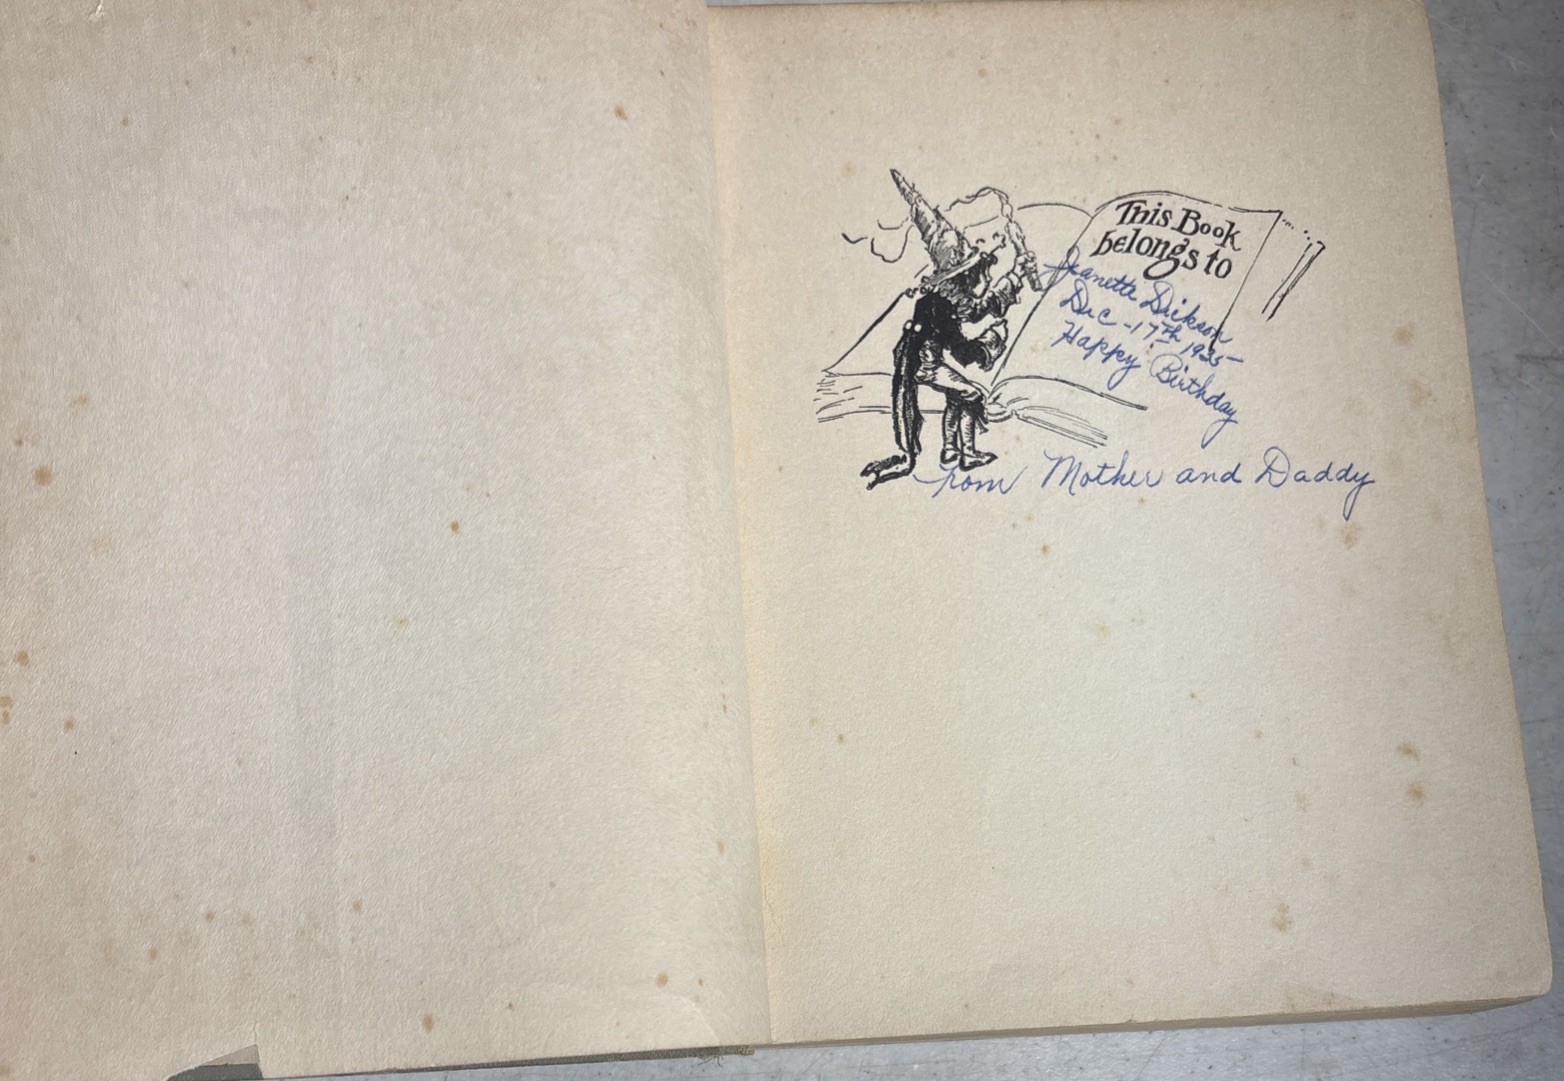 This Book
belongs to
Jeanette Dickson
Dec - 17th 1935
Happy Birthday
from Mother and Daddy